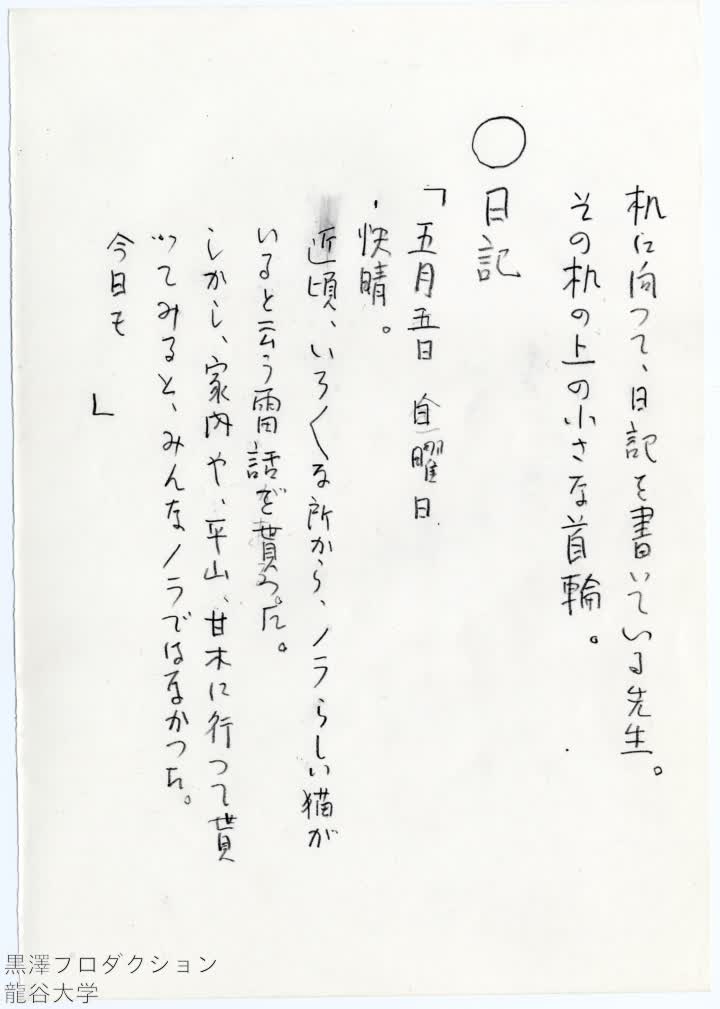 机に向つて、日記を書いている先生。
その机の上の小さな首輪。
○日記
「五月五日 日曜日
・快晴。
近頃、いろ〱な所から、ノラらしい猫が
いると云う電話を貰つた。
しかし、家内や、平山、甘木に行つて貰
つてみると、みんなノラではなかつた。
今日も 」
黒澤プロダクション
龍谷大学